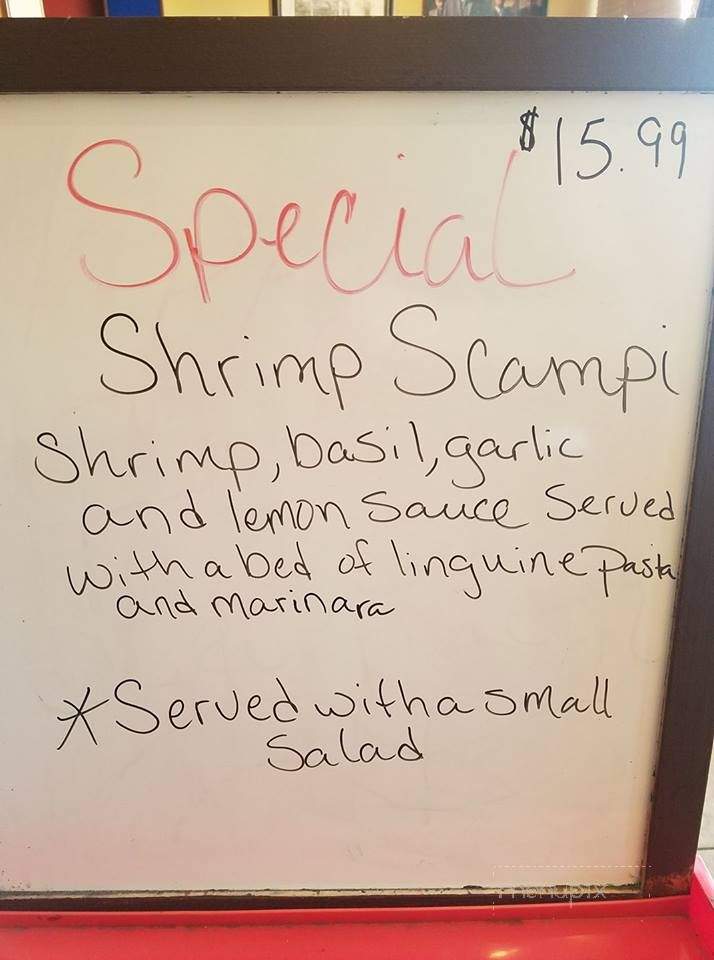 $15.99
Special
Shrimp Scampi
Shrimp, basil, garlic
and lemon sauce Served
with a bed of linguine pasta
and marinara
*Served with a small
Salad
menupix